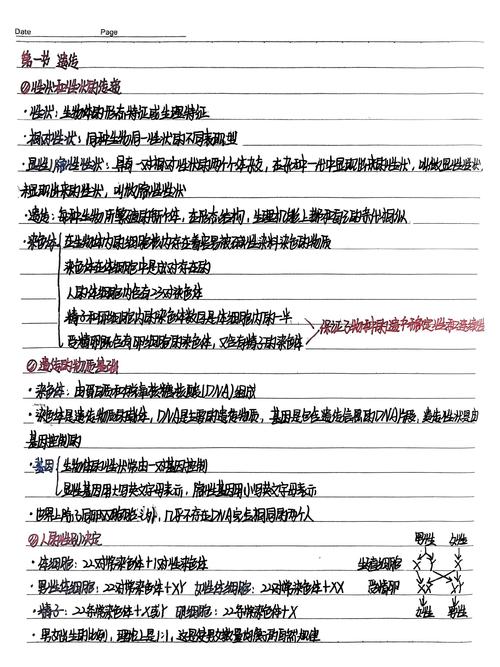 Date Page
第一节 遗传
①性状和性状的传递
·性状：生物体的形态特征或生理特征
·相对性状：同种生物同一性状的不同表现型
·显性/隐性性状：具有一对相对性状的两个个体杂交，在杂种一代中显现出来的性状，叫做显性性状，
未显现出来的性状，叫做隐性性状
·遗传：每种生物所繁殖的后代，在形态结构，生理机能上都
·染色体 在生物体内的细胞核内存在着容易被碱性染料染色的物质
染色体在体细胞中是成对存在的
人的体细胞内含有23对染色体
精子和卵细胞内的染色体数目是体细胞内的一半
受精卵既含有卵细胞的染色体，又含有精子的染色体
保证了物种的遗传稳定性和连续性
②遗传的物质基础
·染色体：由蛋白质和脱氧核糖核酸(DNA)组成
·染色体是遗传物质的载体，DNA是主要的遗传物质，基因是包含遗传信息的DNA片段，遗传性状是由
基因控制的
·基因 生物体的性状常由一对基因控制
显性基因用大写英文字母表示，隐性基因用小写英文字母表示
·世界上除了同卵双胞胎之外，几乎不存在DNA完全相同的两个人
③人的性别决定
·体细胞：22对常染色体+1对性染色体
·男性体细胞：22对常染色体+XY 女性体细胞：22对常染色体+XX
·精子：22条常染色体+X或Y 卵细胞：22条常染色体+X
·男女出生的比例，理论上是1:1，这是使男女数量均衡的自然规律
男性 女性
生殖细胞 X Y X
受精卵 XX XY
女性 男性